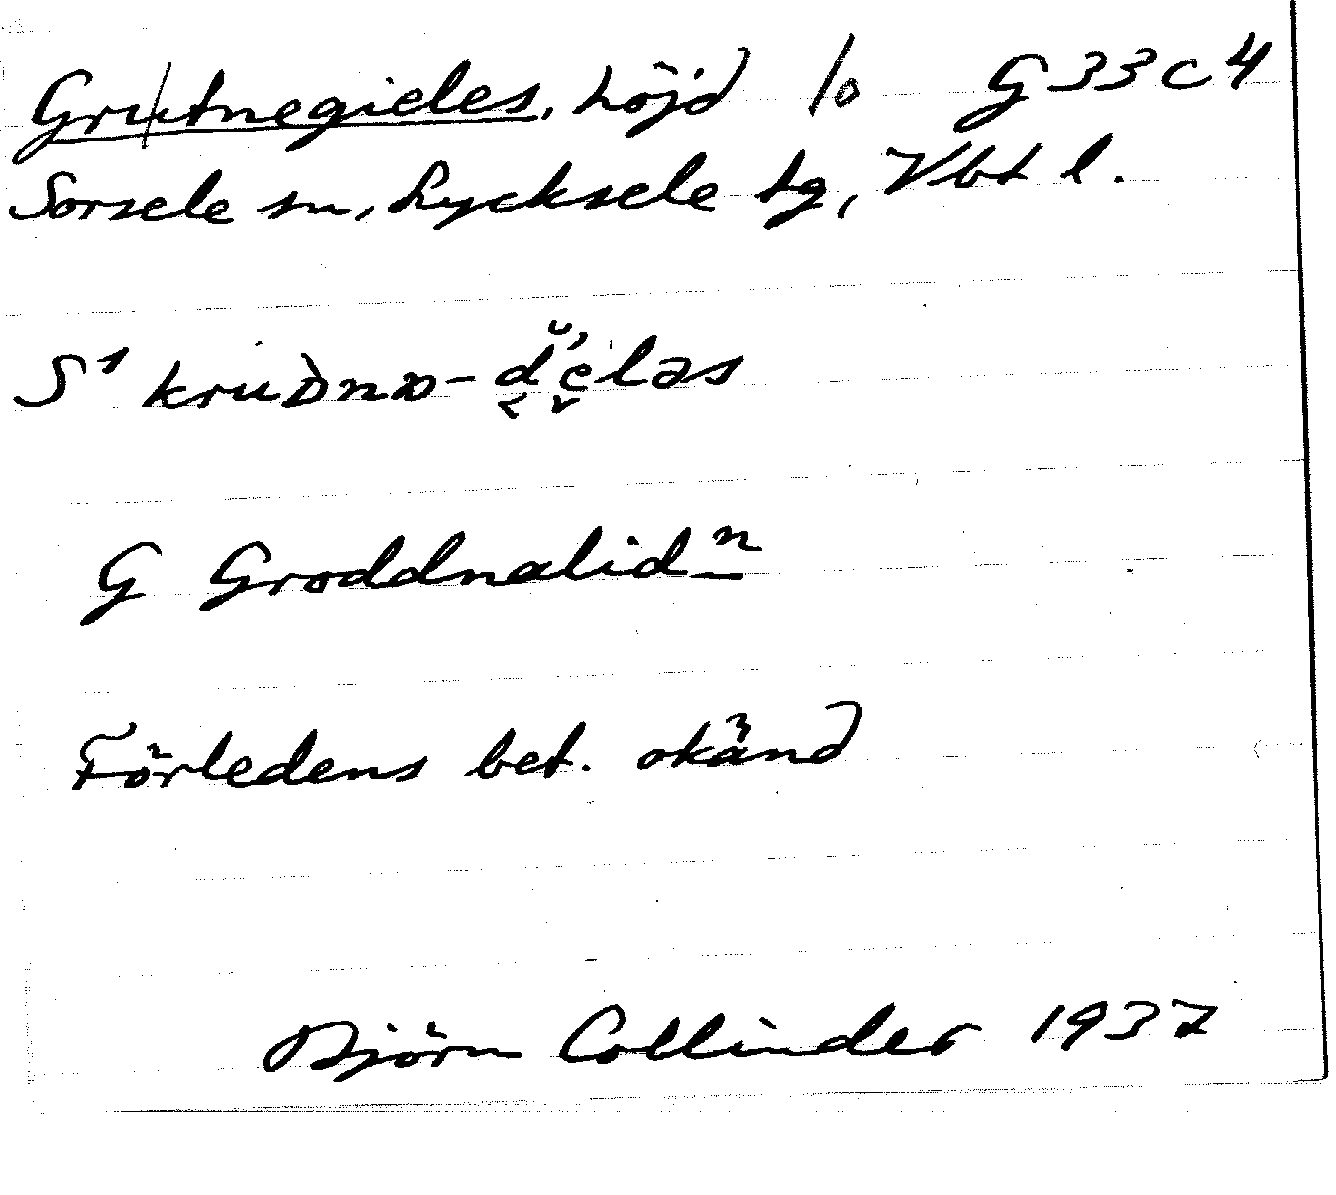 Grutnegieles, höjd lo G33c4
Sorsele sn, Lycksele tg, Vbt l.
S1
G Groddnalidn
Förledens bet. okänd
Björn Collinder 1937